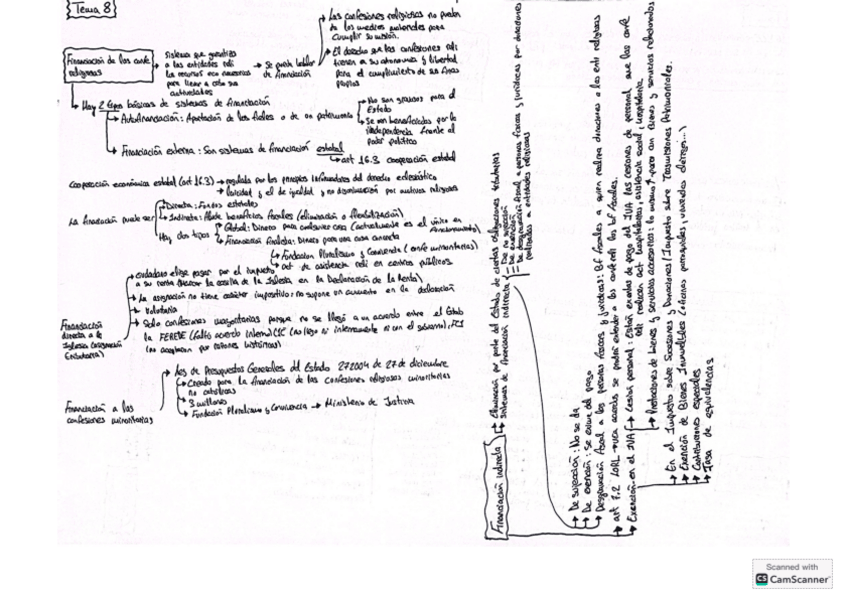 Tema 8
Financiación de las conf religiosas
Sistema que garantiza
a las entidades reli
los recursos eco necesarios
para llevar a cabo sus
actividades
Se puede hablar
de financiación
Las confesiones religiosas no pueden
de los medios materiales para
cumplir su misión.
El derecho que las confesiones reli
tienen a su autonomía y libertad
para el cumplimiento de sus fines
propios
Hay 2 tipos básicos de sistemas de financiación
Autofinanciación: Aportación de los fieles o de un patrimonio
No son gravosos para el
Estado
Se ven beneficiados por la
independencia frente al
poder político
Financiación externa: Son sistemas de financiación estatal
art 16.3 cooperación estatal
Cooperación económica estatal (art 16.3) → regulada por los principios informadores del derecho eclesiástico
laicidad y el de igualdad y no discriminación por motivos religiosos
La financiación puede ser
Directa: Fondos estatales
Indirecta: Añade beneficios fiscales (eliminación o flexibilización)
Hay dos tipos
Global: Dinero para cualquier cosa (actualmente es el único en
Financiación finalista: Dinero para una cosa concreta
Fundación Pluralismo y Convivencia (conf minoritarias)
act de asistencia reli en centros públicos
Financiación
directa a la
Iglesia (asignación
tributaria)
ciudadano elige pagar por el impuesto
a su renta marcar la casilla de la Iglesia en la Declaración de la Renta)
La asignación no tiene carácter impositivo: no supone un aumento en la declaración
Voluntaria
Solo confesiones mayoritarias porque no se llegó a un acuerdo entre el Estado
la FEREDE (falta acuerdo interno) CIE (no llega ni internamente ni con el gobierno), FCI
(no aceptaron por razones históricas)
Financiación a las
confesiones minoritarias
Ley de Presupuestos Generales del Estado 2/2004 de 27 de diciembre
Creado para la financiación de las confesiones religiosas minoritarias
no católicas
3 millones
Fundación Pluralismo y Convivencia → Ministerio de Justicia
Financiación indirecta
Eliminación por parte del Estado de ciertas obligaciones tributarias
Sistemas de financiación indirecta
De no sujeción
De exención
De desgravación fiscal a personas físicas y jurídicas por donaciones
realizadas a entidades religiosas
De sujeción: No se da
De exención: Se exime del pago
Desgravación fiscal a las personas físicas y jurídicas: Bf fiscales a quien realiza donaciones a las enti religiosas
art 7.2 LOLR → los acuerdos se podrá extender a las conf reli los bf fiscales.
Exención en el IVA
Cesión personal: Están exentas de pago del IVA las cesiones de personal que las conf
reli realizan act hospitalarias, asistencia social, hospitalaria.
Prestaciones de bienes y servicios accesorias: lo mismo ↑ pero con bienes y servicios relacionados
En el Impuesto sobre Sucesiones y Donaciones (Impuesto sobre Transmisiones Patrimoniales.
Exención de Bienes Inmuebles
Contribuciones especiales
Tasa de equivalencias
Scanned with
CS CamScanner